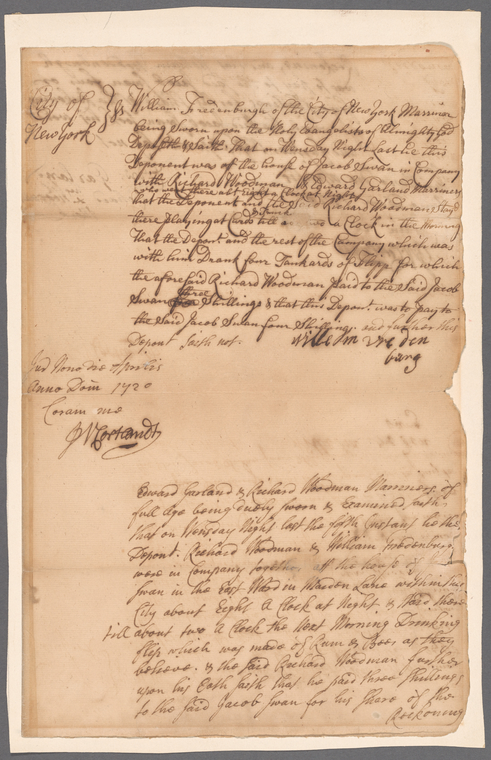 City of
New York } ss
William Fredenburgh of the City of New York Marriner
being Sworn upon the Holy Evangelists of Almighty God
Deposeth & Saith That on Wensday Night Last he this
Deponent was at the house of Jacob Swan in Company
with Richard Woodman & Edward Garland Marriners
who were there at Eight a Clock at Night
that the Deponent and the said Richard Woodman Stayd
there playing at Cards till a Clock in the Morning
That the Depont. and the rest of the Company which was
with him Drank four Tankards of Flipp for which
the aforesaid Richard Woodman paid to the Said Jacob
Swan three Shillings & that this Depont. was to pay to
the Said Jacob Swan four Shillings. and further this
Depont. saith not.
Willem Vreden
burg
Jur Nono die Aprilis
Anno Dom 1720
Coram me
JV Cortlandt
Edward Garland & Richard Woodman Marriners of
full Age being Sworn & Examined saith
that on Wensday Night last the Instant he the
Depont. Richard Woodman & William Fredenburg
were in Company together at the house of
Swan in the East Ward in Maiden Lane within this
City about Eight A Clock at Night & Staid there
till about two A Clock the Next Morning Drinking
flip which was made of Rum & Beer as they
believe. & the said Richard Woodman further
upon his Oath saith that he paid three Shillings
to the said Jacob Swan for his Share of the
Reckoning